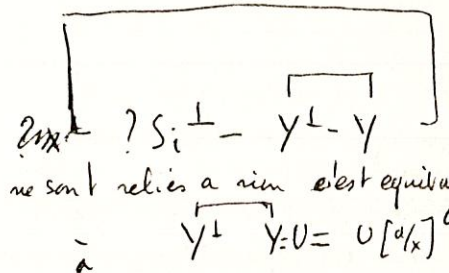 ? Si⊥ - Y⊥ - Y
ne sont reliés a rien c'est equiva
à Y⊥ Y=U = U[a/x]